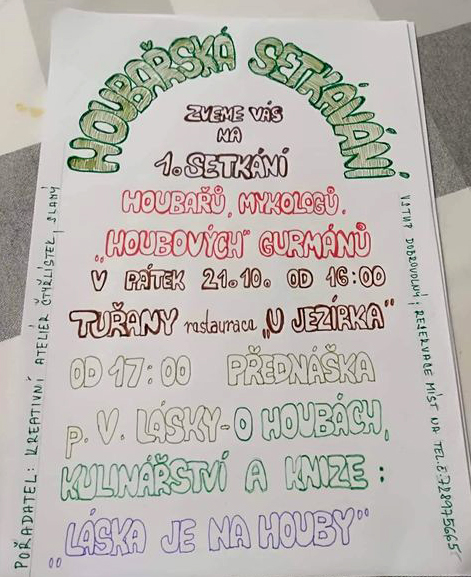 HOUBAŘSKÁ SETKÁVÁNÍ
ZVEME VÁS
NA
1. SETKÁNÍ
HOUBAŘŮ, MYKOLOGŮ,
„HOUBOVÝCH" GURMÁNŮ
V PÁTEK 21.10. OD 16:00
TUŘANY restaurace „U JEZÍRKA"
OD 17:00 PŘEDNÁŠKA
p. V. LÁSKY - O HOUBÁCH,
KULINÁŘSTVÍ A KNIZE:
„LÁSKA JE NA HOUBY"
POŘADATEL: KREATIVNÍ ATELIÉR ČTYŘLÍSTEK, SLANÝ
VSTUP DOBROVOLNÝ, REZERVACE MÍST NA TEL.Č. 728975665